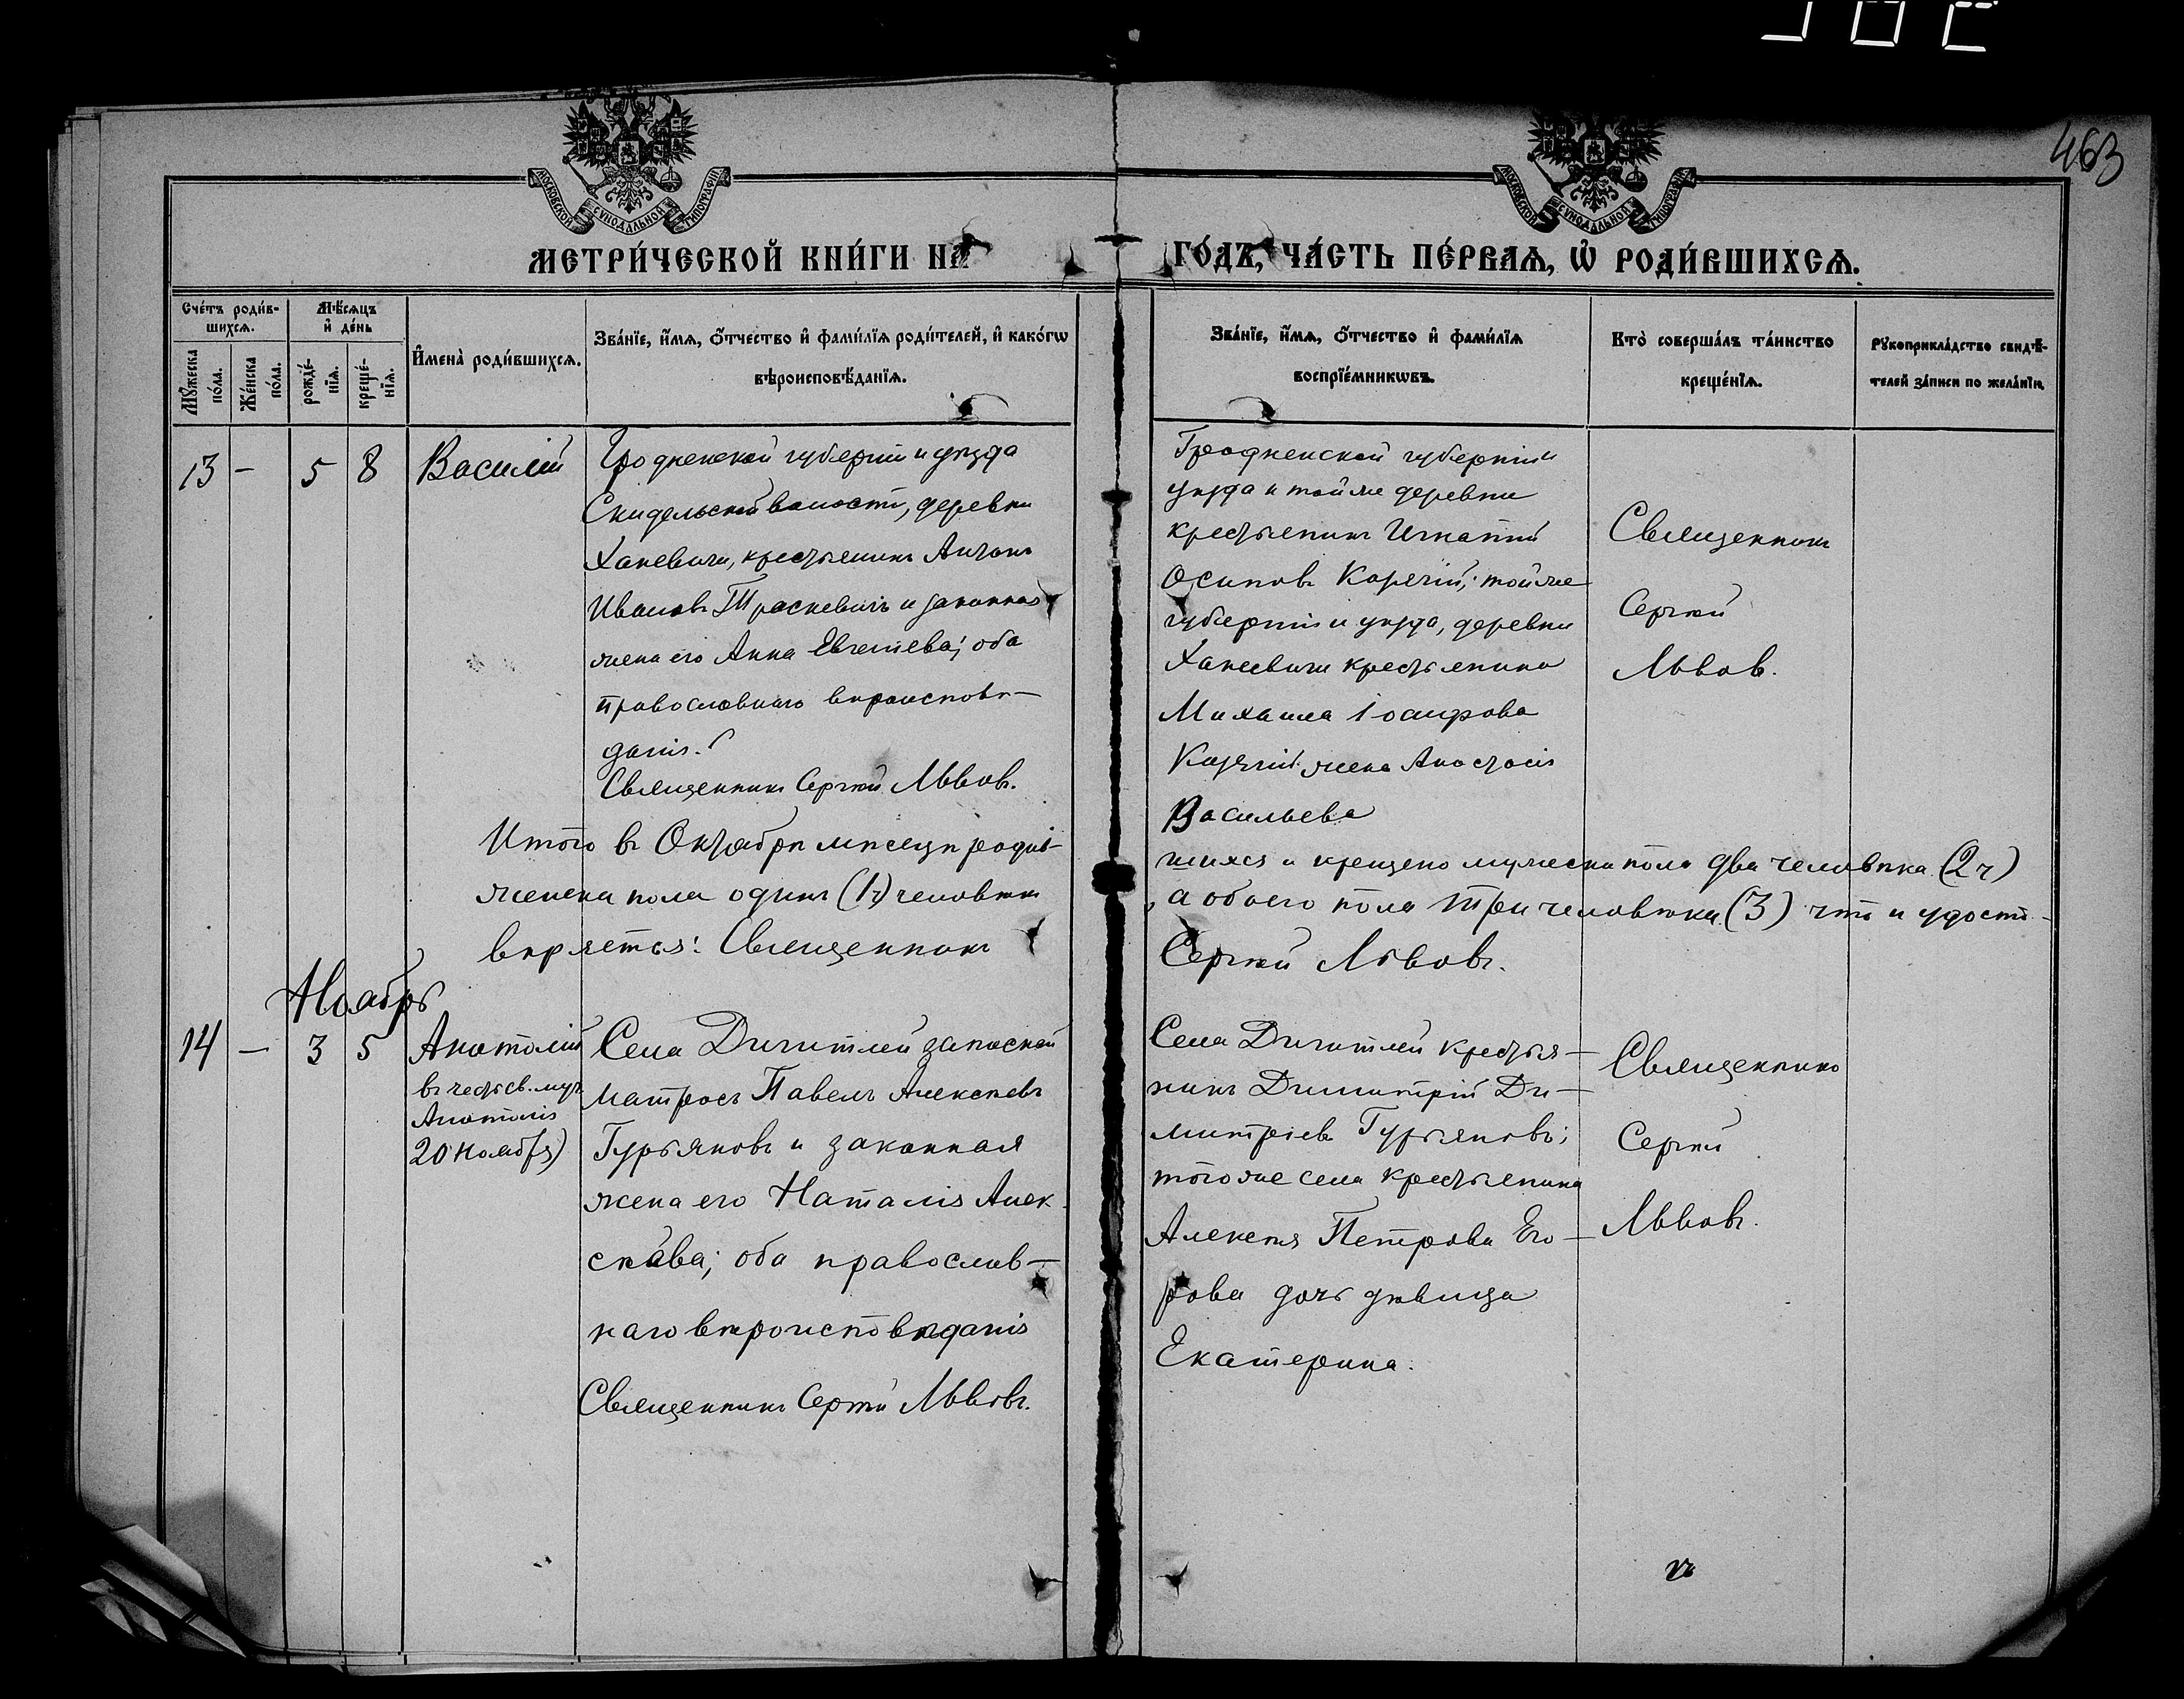 463
МОСКОВСКОЙ СѴНОДАЛЬНОЙ ТИПОГРАФІИ
МОСКОВСКОЙ СѴНОДАЛЬНОЙ ТИПОГРАФІИ
МЕТРИ́ЧЕСКОЙ КНИ́ГИ НА ГО́ДЪ, ЧА́СТЬ ПЕ́РВАѦ, Ѡ҆ РОДИ́ВШИХСѦ.
Сче́тъ роди́в-
шихсѧ.
Мꙋ́жеска
по́ла.
Же́нска
по́ла.
Мѣ́сѧцъ
и҆ де́нь
рожде́-
нїѧ.
креще́-
нїѧ.
И҆мена̀ роди́вшихсѧ.
Зва́нїе, и҆́мѧ, ѻ҆́тчество и҆ фами́лїѧ роди́телей, и҆ како́гѡ
вѣроисповѣ́данїѧ.
Зва́нїе, и҆́мѧ, ѻ҆́тчество и҆ фами́лїѧ
воспрїе́мникѡвъ.
Кто̀ соверша́лъ та́инство
креще́нїѧ.
Рꙋкоприкла́дство свидѣ́-
телей за́писи по жела́нїю.
13 – 5 8 Василій
Гродненской губерніи и уѣзда
Скидельской волости, деревни
Ханевичи, крестьянинъ Антонъ
Ивановъ Траскевичъ и законная
жена его Анна Евгеніева; оба
православнаго вѣроисповѣ-
данія.
Священникъ Сергѣй Львовъ.
Гродненской губерніи и
уѣзда и той же деревни
крестьянинъ Игнатій
Осиповъ Корячій; той же
губерніи и уѣзда, деревни
Ханевичи крестьянина
Михаила Іосифова
Корячій жена Анастасія
Васильева
Священникъ
Сергѣй
Львовъ.
Итого въ Октябрѣ мѣсяцѣ родив-
шихся и крещено мужеска пола два человѣка (2 ч)
женска пола одинъ (1 ч) человѣкъ
, а обоего пола три человѣка (3) что и удосто-
вѣряется: Священникъ
Сергѣй Львовъ.
Ноябрь
14 – 3 5 Анатолій
въ честь св. муч.
Анатолія
20 ноября)
Села Дигитлей запасной
матросъ Павелъ Алексѣевъ
Гурьяновъ и законная
жена его Наталія Алек-
сѣева; оба православ-
наго вѣроисповѣданія
Священникъ Сергѣй Львовъ.
Села Дигитлей крестья-
нинъ Димитрій Ди-
митріевъ Гурьяновъ;
того же села крестьянина
Алексѣя Петрова Его-
рова дочь дѣвица
Екатерина.
Священникъ
Сергѣй
Львовъ.